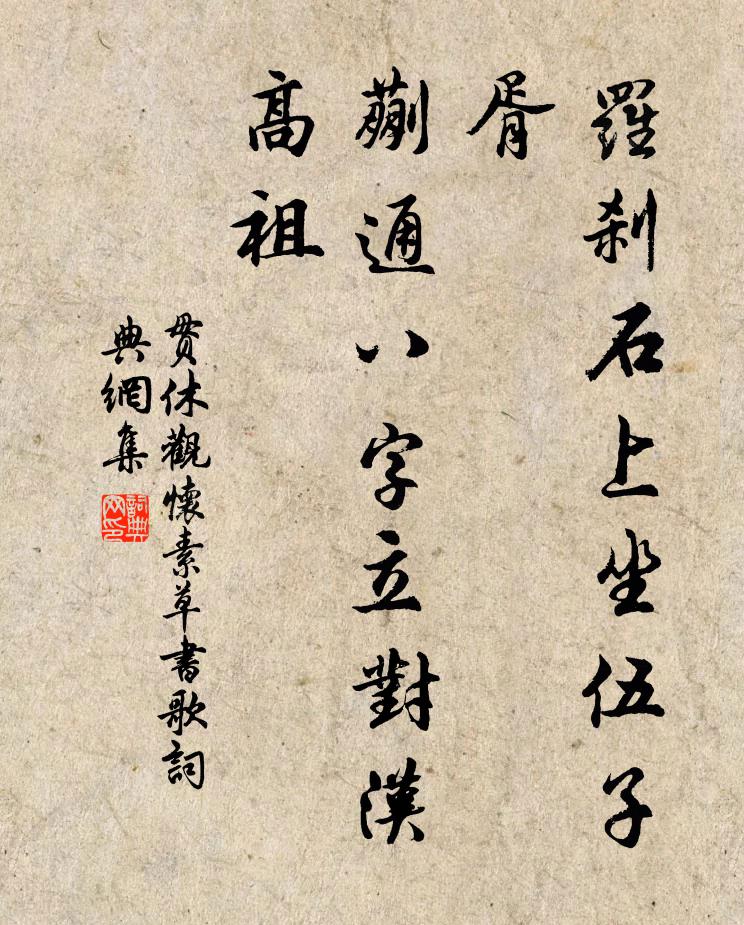 羅剎石上坐伍子
胥
蒯通八字立對漢
高祖
貫休觀懷素草書歌詞
典網集
詞典
网印